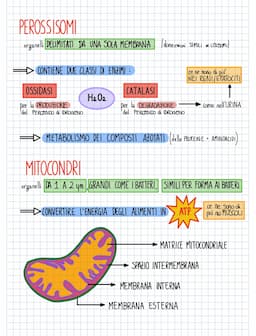 PEROSSISOMI
organelli DELIMITATI DA UNA SOLA MEMBRANA (dimensioni SIMILI ai LISOSOMI)
CONTIENE DUE CLASSI DI ENZIMI
ce ne sono di più
NEI RENI / EPATOCITI
OSSIDASI
per la PRODUZIONE
del PEROSSIDO di IDROGENO
H₂O₂
CATALASI
per la DEGRADAZIONE
del PEROSSIDO di IDROGENO
come nell'URINA
METABOLISMO DEI COMPOSTI AZOTATI (delle PROTEINE + AMINOACIDI)
MITOCONDRI
organelli DA 1 A 2 μm GRANDI COME I BATTERI SIMILI PER FORMA AI BATTERI
CONVERTIRE L'ENERGIA DEGLI ALIMENTI IN ATP
ce ne sono di
più nei MUSCOLI
MATRICE MITOCONDRIALE
SPAZIO INTERMEMBRANA
MEMBRANA INTERNA
MEMBRANA ESTERNA